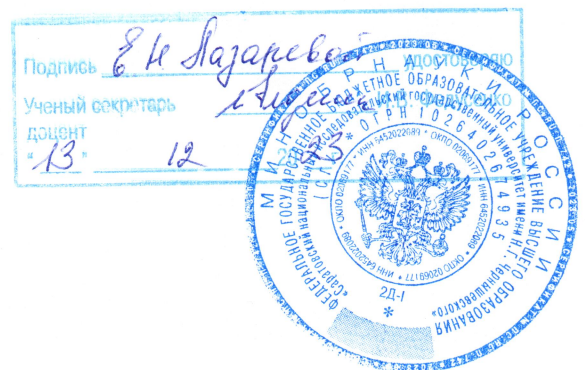 Подпись Е Н Лазаревой удостоверяю
Ученый секретарь
доцент
"13" 12 23
МИНОБРНАУКИ РОССИИ
ФЕДЕРАЛЬНОЕ ГОСУДАРСТВЕННОЕ БЮДЖЕТНОЕ ОБРАЗОВАТЕЛЬНОЕ УЧРЕЖДЕНИЕ ВЫСШЕГО ОБРАЗОВАНИЯ
«Саратовский национальный исследовательский государственный университет имени Н.Г. Чернышевского»
(СГУ) * ОГРН 1026402674935
* ОКПО 02069177 * ИНН 6452022089 * ОКПО 02069177 * ИНН 6452022089 * ОКПО 02069177 * ИНН 6452022089
2Д-I
*